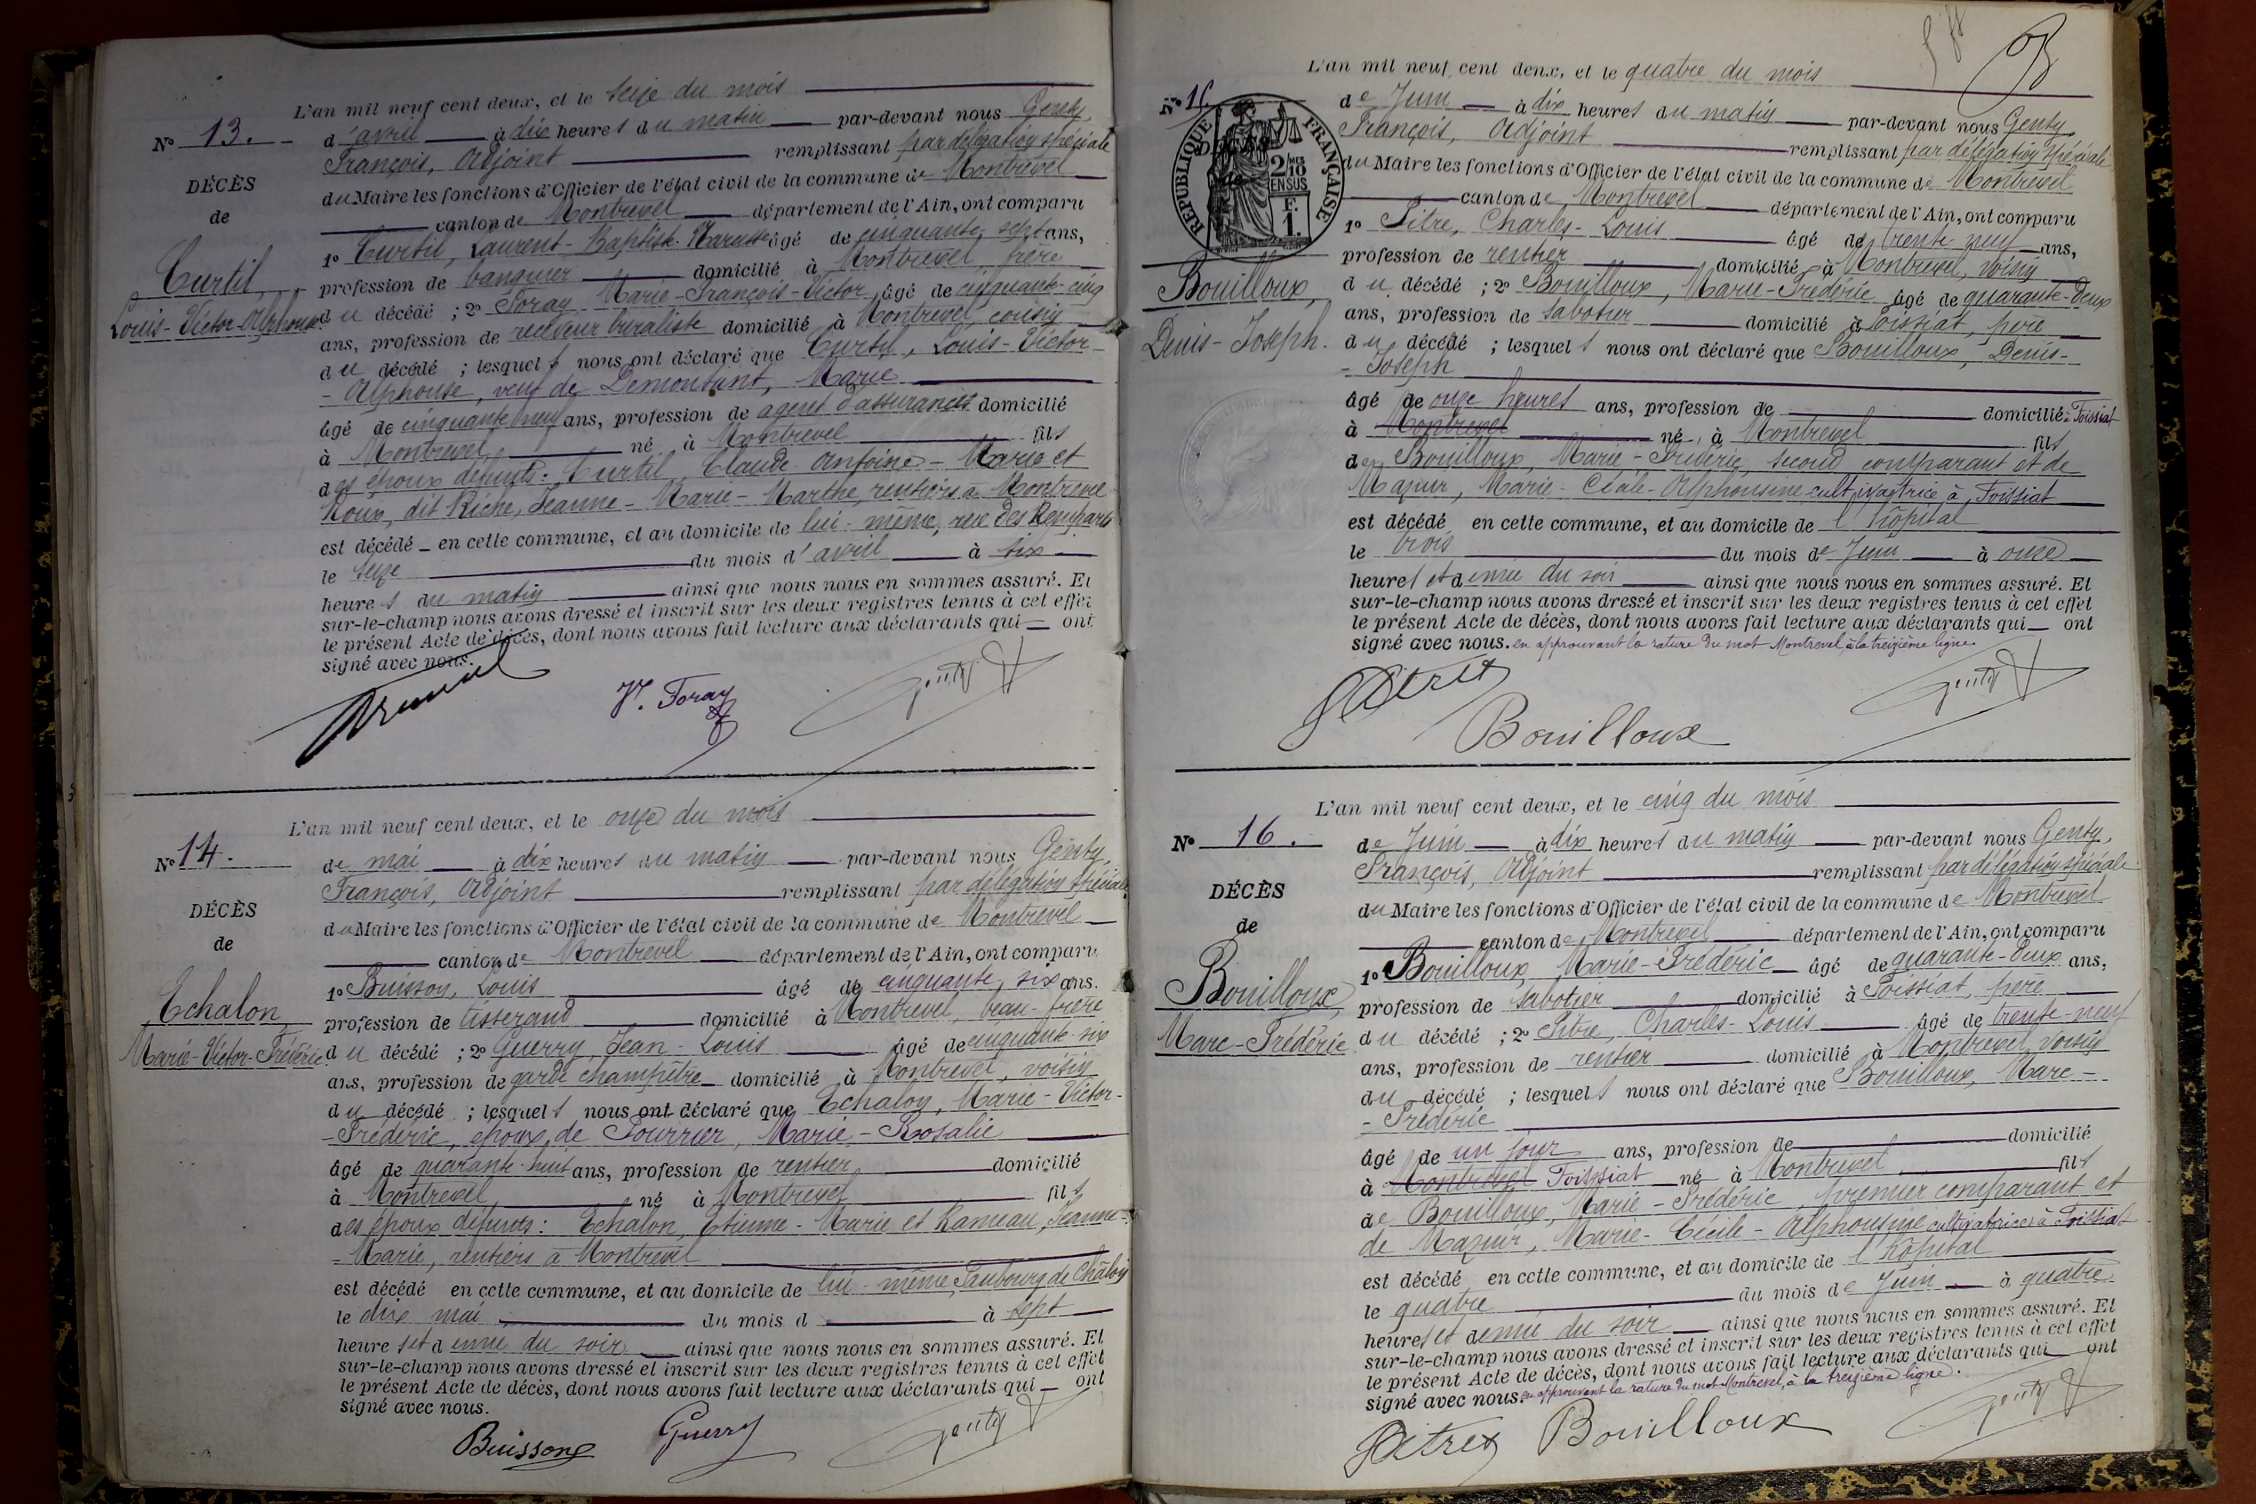 L'an mil neuf cent deux, et le seize du mois
N° 13.
d'avril à dix heures du matin par-devant nous Genty,
François, Adjoint remplissant par délégation spéciale
DÉCÈS
du Maire les fonctions d'Officier de l'état civil de la commune de Montrevel
de
canton de Montrevel département de l'Ain, ont comparu
Curtil,
Louis-Victor-Alphonse
1° Curtil, Laurent-Baptiste âgé de cinquante sept ans,
profession de banquier domicilié à Montrevel, frère
du décédé ; 2° Foray Marie-François-Victor, âgé de cinquante-cinq
ans, profession de receveur buraliste domicilié à Montrevel, cousin
du décédé ; lesquels nous ont déclaré que Curtil, Louis-Victor-
-Alphonse, veuf de Démontant, Marie
âgé de cinquante neuf ans, profession de agent d'assurances domicilié
à Montrevel, né à Montrevel fils
des époux défunts: Curtil, Claude-Antoine-Marie et
Roux, dit Riche, Jeanne-Marie-Marthe, rentiers à Montrevel
est décédé en cette commune, et au domicile de lui-même, rue des Remparts
le seize du mois d'avril à six
heures du matin ainsi que nous nous en sommes assuré. Et
sur-le-champ nous avons dressé et inscrit sur les deux registres tenus à cet effet
le présent Acte de décès, dont nous avons fait lecture aux déclarants qui ont
signé avec nous.
V. Foray
Genty
L'an mil neuf cent deux, et le onze du mois
N° 14.
de mai à dix heures du matin par-devant nous Genty,
François, Adjoint remplissant par délégation spéciale
DÉCÈS
du Maire les fonctions d'Officier de l'état civil de la commune de Montrevel
de
canton de Montrevel département de l'Ain, ont comparu
Echalon
Marie-Victor-Frédéric
1° Buisson, Louis âgé de cinquante six ans.
profession de tisserand domicilié à Montrevel, beau-frère
du décédé ; 2° Guerry, Jean-Louis âgé de cinquante-six
ans, profession de garde champêtre domicilié à Montrevel, voisin
du décédé ; lesquels nous ont déclaré que Echalon, Marie-Victor-
-Frédéric, époux de Fourrier, Marie-Rosalie
âgé de quarante-huit ans, profession de rentier domicilié
à Montrevel né à Montrevel fils
des époux défunts: Echalon, Etienne-Marie et Rameau, Jeanne-
-Marie, rentiers à Montrevel
est décédé en cette commune, et au domicile de lui-même, Faubourg de Châlon
le dix mai du mois d à sept
heures et demie du soir ainsi que nous nous en sommes assuré. Et
sur-le-champ nous avons dressé et inscrit sur les deux registres tenus à cet effet
le présent Acte de décès, dont nous avons fait lecture aux déclarants qui ont
signé avec nous.
Buisson
Guerry
Genty
L'an mil neuf cent deux, et le quatre du mois
N° 15
de Juin à dix heures du matin par-devant nous Genty,
François, Adjoint remplissant par délégation spéciale
RÉPUBLIQUE FRANÇAISE
2/10 EN SUS
F. 1.
du Maire les fonctions d'Officier de l'état civil de la commune de Montrevel
canton de Montrevel département de l'Ain, ont comparu
Bouilloux,
Denis-Joseph.
1° Pitre, Charles-Louis âgé de trente neuf ans,
profession de rentier domicilié à Montrevel, voisin
du décédé ; 2° Bouilloux, Marie-Frédéric âgé de quarante-deux
ans, profession de sabotier domicilié à Foissiat, père
du décédé ; lesquels nous ont déclaré que Bouilloux, Denis-
-Joseph
âgé de onze heures ans, profession de domicilié à Foissiat
à Montrevel né à Montrevel fils
de Bouilloux, Marie-Frédéric, second comparant et de
Mazuir, Marie-Cécile-Alphonsine cultivatrice à Foissiat
est décédé en cette commune, et au domicile de l'hôpital
le trois du mois de Juin à onze
heures et demie du soir ainsi que nous nous en sommes assuré. Et
sur-le-champ nous avons dressé et inscrit sur les deux registres tenus à cet effet
le présent Acte de décès, dont nous avons fait lecture aux déclarants qui ont
signé avec nous. en approuvant la rature du mot Montrevel, à la treizième ligne.
Pitre
Bouilloux
Genty
L'an mil neuf cent deux, et le cinq du mois
N° 16.
de Juin à dix heures du matin par-devant nous Genty,
François, Adjoint remplissant par délégation spéciale
DÉCÈS
du Maire les fonctions d'Officier de l'état civil de la commune de Montrevel
de
canton de Montrevel département de l'Ain, ont comparu
Bouilloux,
Marc-Frédéric
1° Bouilloux, Marie-Frédéric âgé de quarante-deux ans,
profession de sabotier domicilié à Foissiat, père
du décédé ; 2° Pitre, Charles-Louis âgé de trente-neuf
ans, profession de rentier domicilié à Montrevel, voisin
du décédé ; lesquels nous ont déclaré que Bouilloux, Marc-
-Frédéric
âgé de un jour ans, profession de domicilié
à Montrevel Foissiat né à Montrevel fils
de Bouilloux, Marie-Frédéric, premier comparant et
de Mazuir, Marie-Cécile-Alphonsine cultivatrice à Foissiat
est décédé en cette commune, et au domicile de l'hôpital
le quatre du mois de Juin à quatre
heures et demie du soir ainsi que nous nous en sommes assuré. Et
sur-le-champ nous avons dressé et inscrit sur les deux registres tenus à cet effet
le présent Acte de décès, dont nous avons fait lecture aux déclarants qui ont
signé avec nous. en approuvant la rature du mot Montrevel, à la treizième ligne.
Pitre
Bouilloux
Genty